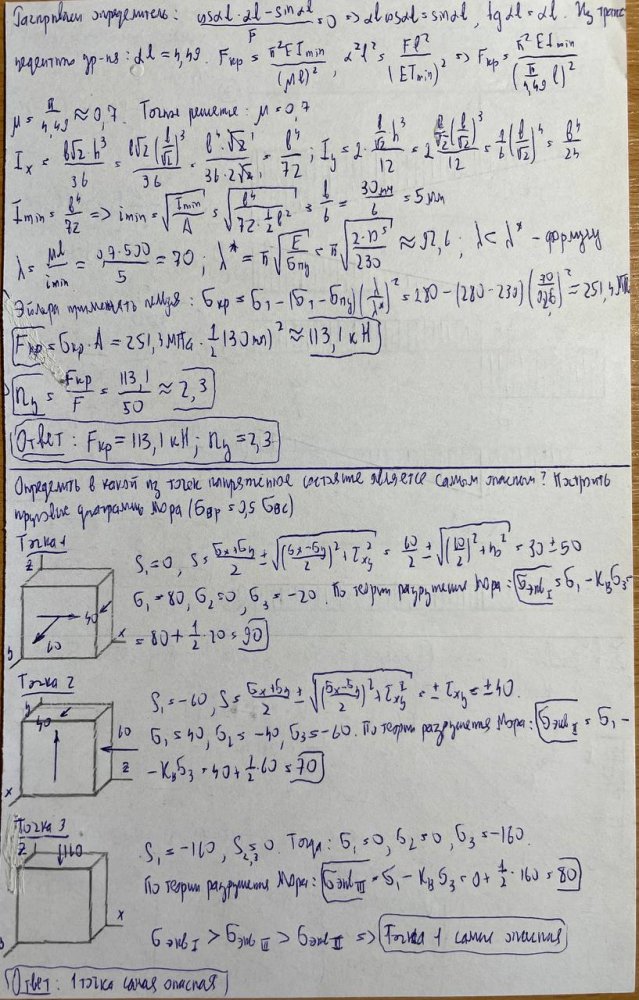 Раскрываем определитель: (cosαl·αl − sinαl)/F = 0 ⇒ αl cosαl = sinαl, tgαl = αl. Из транс
ур-ня: αl = 4,49. Fкр = π²EImin/(μl)², α²l² = Fl²/(EImin)² ⇒ Fкр = π²EImin/(π/4,49 l)²
μ = π/4,49 ≈ 0,7. Точное решение: μ = 0,7
Ix = b√2 h³/36 = b√2 (b/√2)³/36 = b⁴·√2/36·2√2 = b⁴/72; Iy = 2· b/√2 h³/12 = 2 b/√2 (b/√2)³/12 = 1/6 (b/√2)⁴ = b⁴/24
Imin = b⁴/72 ⇒ imin = √(Imin/A) = √(b⁴/72·½b²) = b/6 = 30мм/6 = 5мм
λ = μl/imin = 0,7·500/5 = 70; λ* = π√(E/σпц) = π√(2·10⁵/230) ≈ 92,6; λ < λ* - формулу
Эйлера применять нельзя: σкр = σт − (σт − σпц)(λ/λ*)² = 280 − (280 − 230)(70/92,6)² ≈ 251,4 МПа
Fкр = σкр·A = 251,4 МПа · ½(30мм)² ≈ 113,1 кН
nу = Fкр/F = 113,1/50 ≈ 2,3
Ответ: Fкр = 113,1 кН; nу = 2,3
Определить в какой из точек напряженное состояние является самым опасным? Построить
круговые диаграммы Мора (σвр = 0,5 σвс)
Точка 1
z
S₁ = 0, S = (σx+σy)/2 ± √(((σx−σy)/2)² + τxy²) = 60/2 ± √((60/2)² + 40²) = 30 ± 50
40
60
x
y
σ₁ = 80, σ₂ = 0, σ₃ = −20. По теории разрушения Мора: σэквI = σ₁ − Kвσ₃ =
= 80 + ½·20 = 90
Точка 2
y
40
60
z
x
S₁ = −60, S = (σx+σy)/2 ± √(((σx−σy)/2)² + τxy²) = ± τxy = ±40.
σ₁ = 40, σ₂ = −40, σ₃ = −60. По теории разрушения Мора: σэквII = σ₁ −
− Kвσ₃ = 40 + ½·60 = 70
Точка 3
z
160
x
y
S₁ = −160, S₂,₃ = 0. Тогда: σ₁ = 0, σ₂ = 0, σ₃ = −160.
По теории разрушения Мора: σэквIII = σ₁ − Kвσ₃ = 0 + ½·160 = 80
σэквI > σэквIII > σэквII ⇒ Точка 1 самая опасная
Ответ: 1 точка самая опасная